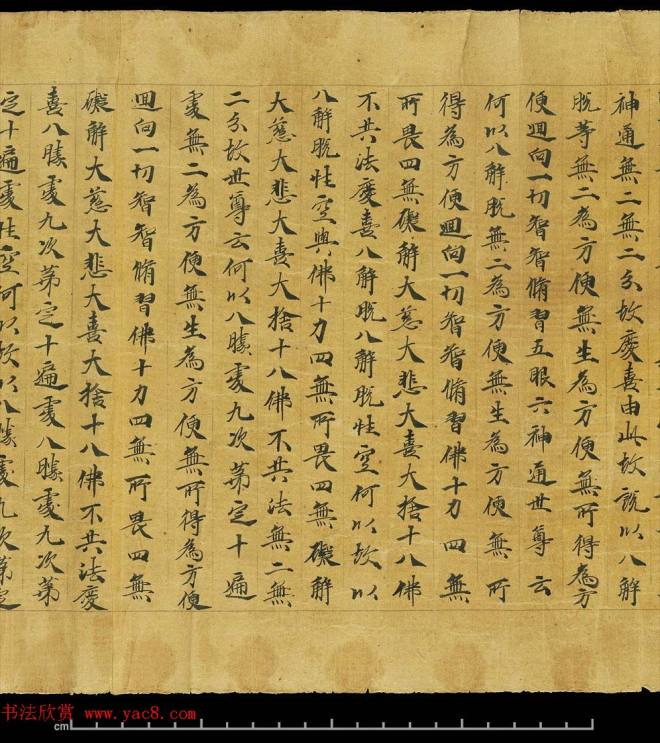 神通無二無二分故慶喜由此故說以八解
脫等無二為方便無生為方便無所得為方
便迴向一切智智脩習五眼六神通世尊云
何以八解脫無二為方便無生為方便無所
得為方便迴向一切智智脩習佛十力四無
所畏四無礙解大慈大悲大喜大捨十八佛
不共法慶喜八解脫八解脫性空何以故以
八解脫性空與佛十力四無所畏四無礙解
大慈大悲大喜大捨十八佛不共法無二無
二分故世尊云何以八勝處九次第定十遍
處無二為方便無生為方便無所得為方便
迴向一切智智脩習佛十力四無所畏四無
礙解大慈大悲大喜大捨十八佛不共法慶
喜八勝處九次第定十遍處八勝處九次第
定十遍處性空何以故以八勝處九次第定
书法欣赏 www.yac8.com
cm